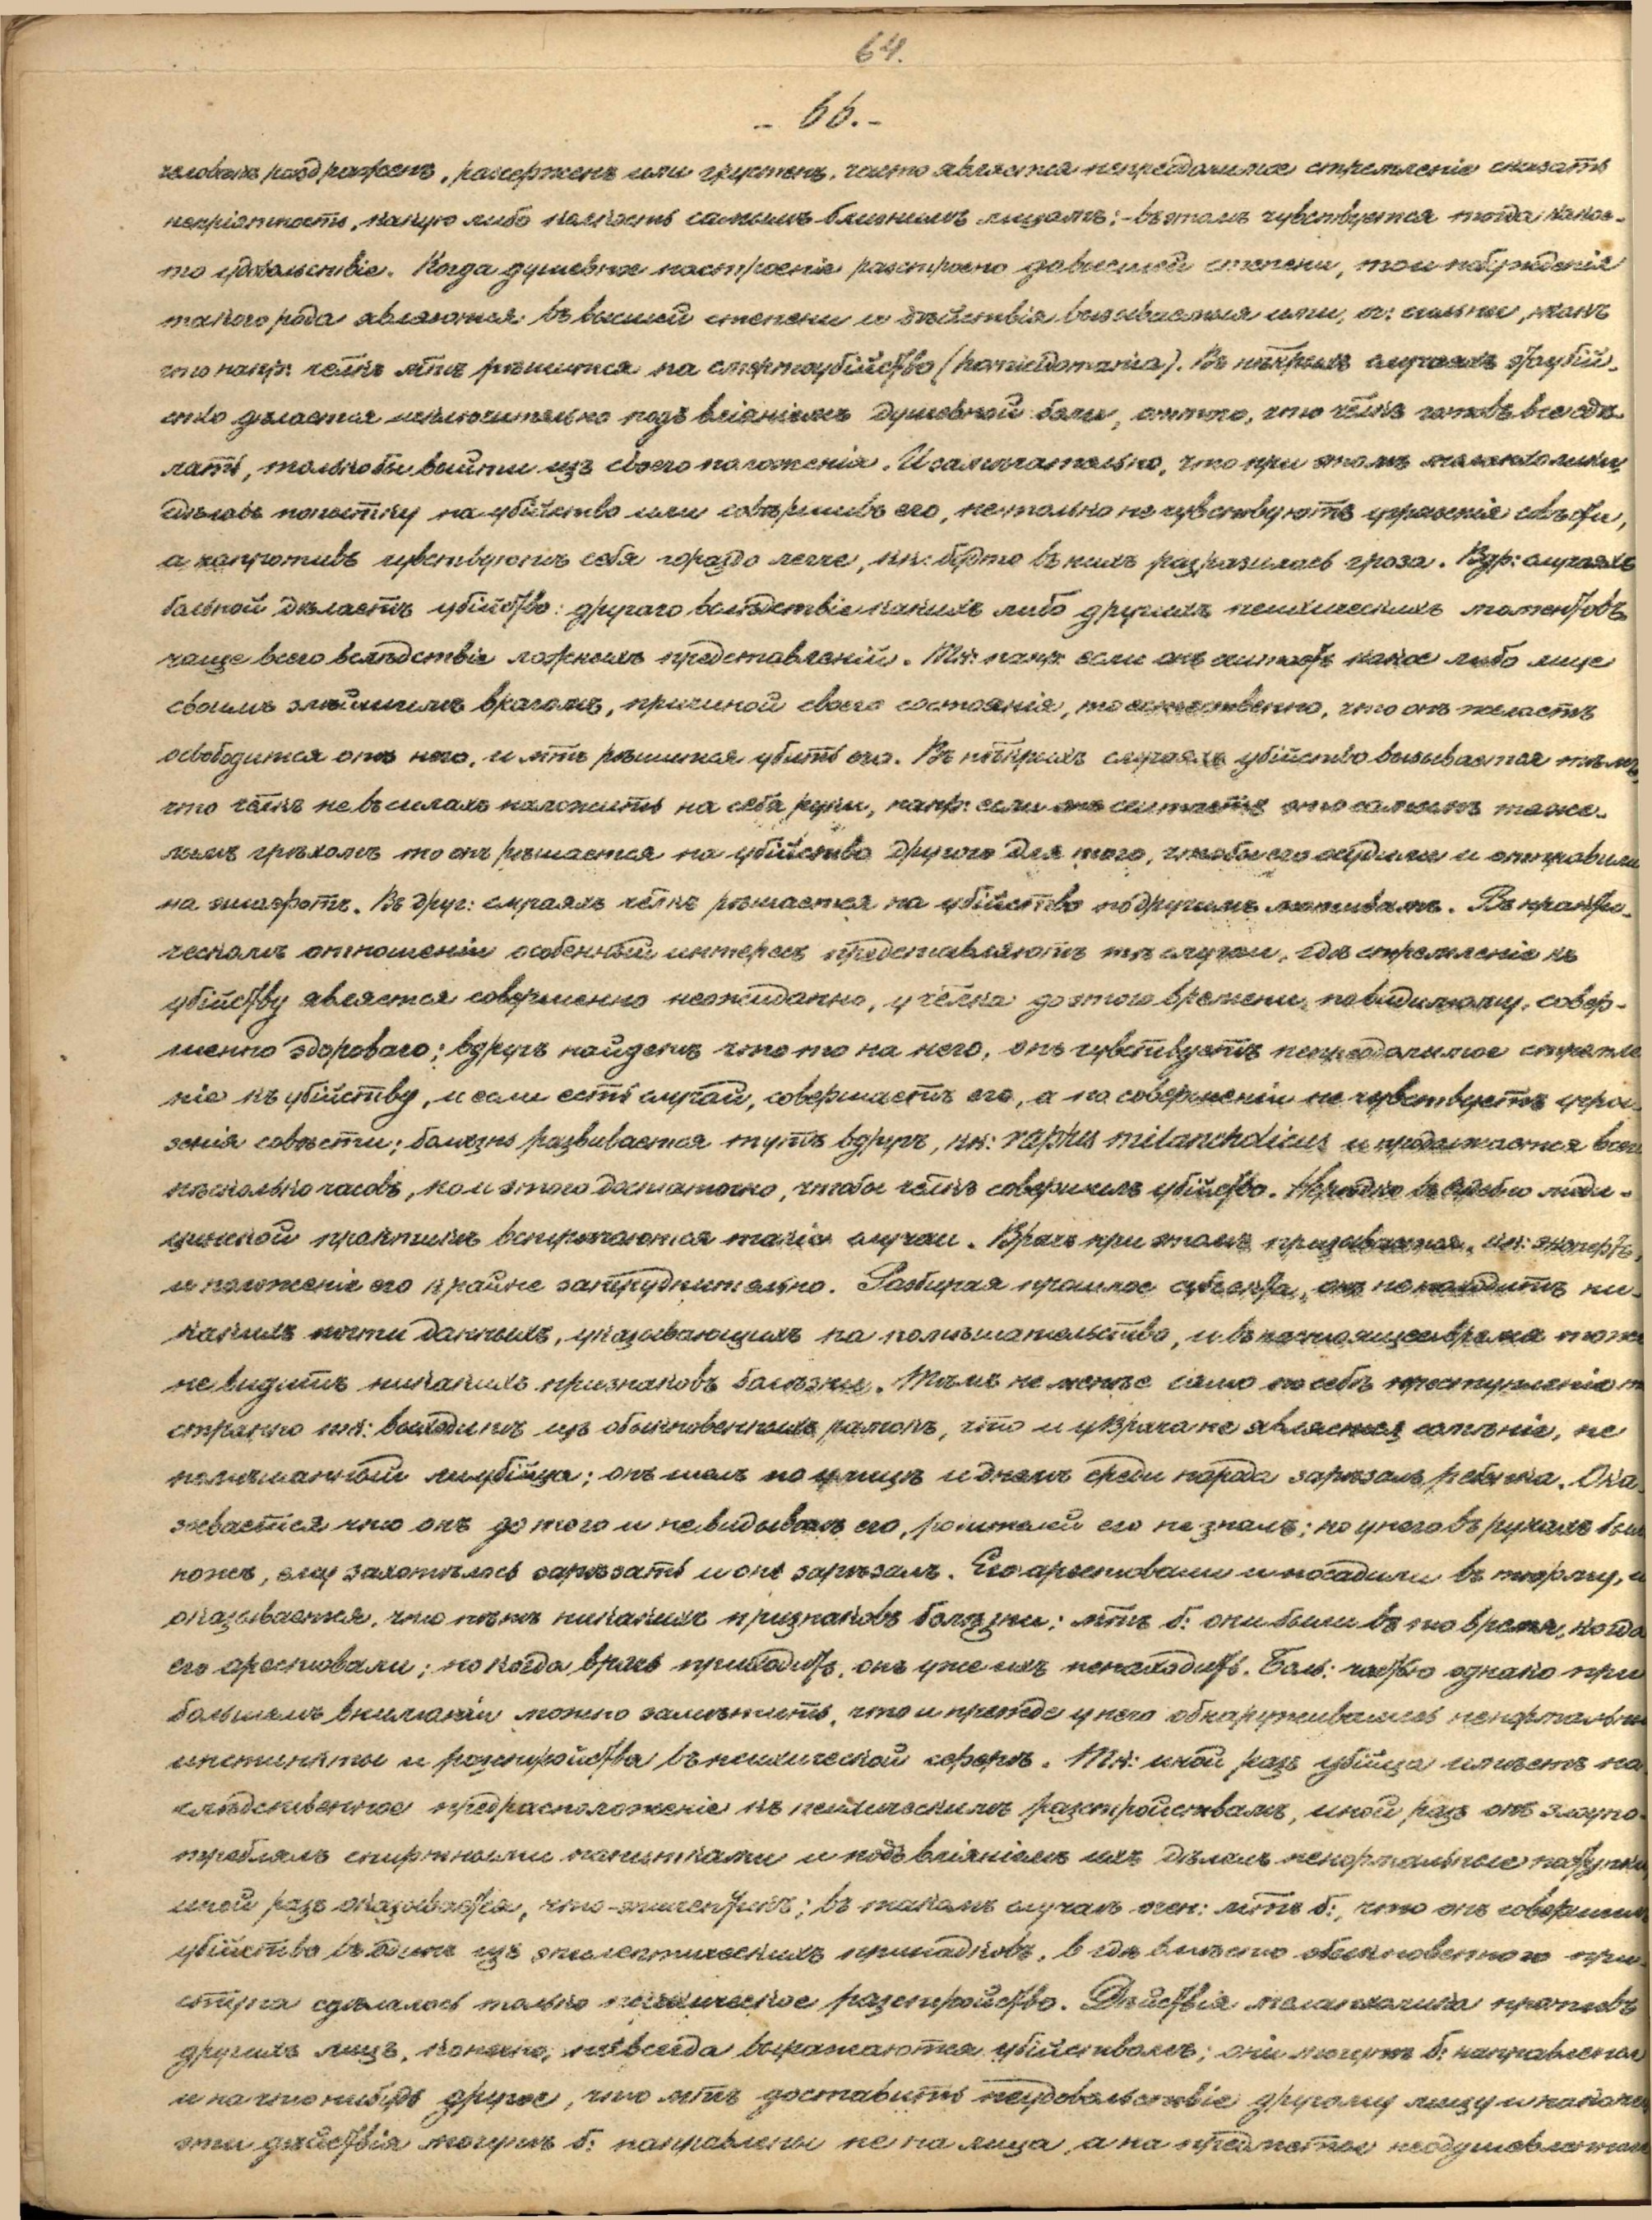 64.
- 66. -
человѣкъ раздраженъ, разсерженъ или грустенъ, часто является непреодолимое стремленіе сказать
непріятность, какую либо колкость самымъ ближнимъ лицамъ; - въ этомъ чувствуется тогда какое-
то удовольствіе. Когда душевное настроеніе разстроено до высшей степени, то и побужденія
такого рода являются въ высшей степени и дѣйствія вызываемыя ими, оч: сильны, такъ
что напр: чѣлкъ мтъ рѣшится на смертоубійство (homicidomania). Въ нѣкрыхъ случаяхъ это убій-
ство дѣлается исключительно подъ вліяніемъ душевной боли, оттого, что чѣлкъ готовъ все сдѣ-
лать, только бы выйти изъ своего положенія. И замѣчательно, что при этомъ меланхолики,
сдѣлавъ попытку на убійство или совершивъ его, не только не чувствуютъ угрызенія совѣсти,
а напротивъ чувствуютъ себя гораздо легче, кк: будто въ нихъ разразилась гроза. В др: случаяхъ
больной дѣлаетъ убійство другаго вслѣдствіе какихъ либо другихъ психическихъ моментовъ
чаще всего вслѣдствіе ложныхъ представленій. Тк: напр: если онъ считаетъ какое либо лице
своимъ злѣйшимъ врагомъ, причиной своего состоянія, то естественно, что онъ желаетъ
освободится отъ него, и мтъ рѣшится убить его. Въ нѣкрыхъ случаяхъ убійство вызывается тѣмъ,
что чѣлкъ не въ силахъ наложить на себя руки, напр: если онъ считаетъ это самымъ тяже-
лымъ грѣхомъ то онъ рѣшается на убійство другого для того, чтобы его осудили и отправили
на эшафотъ. Въ друг: случаяхъ чѣлкъ рѣшается на убійство по другимъ мотивамъ. Въ практи-
ческомъ отношеніи особенный интересъ представляютъ тѣ случаи, гдѣ стремленіе къ
убійству является совершенно неожиданно, у чѣлка до этого времени, повидимому, совер-
шенно здороваго; вдругъ найдетъ что то на него, онъ чувствуетъ непреодолимое стремле
ніе къ убійству, и если есть случай, совершаетъ его, а по совершеніи не чувствуетъ угры-
зенія совѣсти; болѣзнь развивается тутъ вдругъ, кк: raptus milancholicus и продолжается всего
нѣсколько часовъ, но и этого достаточно, чтобы чѣлкъ совершилъ убійство. Нерѣдко въ судебно меди-
цинской практикѣ встрѣчаются такіе случаи. Врачъ при этомъ призывается, кк: экспертъ,
и положеніе его крайне затруднительно. Разбирая прошлое субъекта, онъ не находитъ ни-
какихъ почти данныхъ, указывающихъ на помѣшательство, и въ настоящее время тоже
не видитъ никакихъ признаковъ болѣзни. Тѣмъ не менѣе само по себѣ преступленіе т
странно тк: выходитъ изъ обыкновенныхъ рамокъ, что и у врача не является сомнѣніе, не
помѣшанный ли убійца; онъ шелъ по улицѣ и днемъ среди народа зарѣзалъ ребенка. Ока-
зывается что онъ до того и не видывалъ его, родителей его не зналъ; но у него въ рукахъ былъ
ножъ, ему захотѣлось зарѣзать и онъ зарѣзалъ. Его арестовали и посадили въ тюрьму, и
оказывается, что нѣтъ никакихъ признаковъ болѣзни; мтъ б: они были въ то время, когда
его арестовали; но когда врачъ приходитъ, онъ уже ихъ не находитъ. Боль: частью однако при
большемъ вниманіи можно замѣтить, что и прежде у него обнаруживались ненормальны
инстинкты и разстройства въ психической сферѣ. Тк: иной разъ убійца имѣетъ на
слѣдственное предрасположеніе къ психическимъ разстройствамъ, иной разъ онъ злоупо-
треблялъ спиртными напитками и подъ вліяніемъ ихъ дѣлалъ ненормальные поступки
иной разъ оказывается, что-эпилептикъ; въ такомъ случаѣ оч: мтъ б:, что онъ совершилъ
убійство въ одинъ изъ эпилептическихъ припадковъ, в гдѣ вмѣсто обыкновеннаго при-
ступа сдѣлалось только психическое разстройство. Дѣйствія меланхолика противъ
другихъ лицъ, конечно, не всегда выражаются убійствомъ; они могутъ б: направлены
и на что нибудь другое, что мтъ доставить неудовольствіе другому лицу и наконецъ
эти дѣйствія могутъ б: направлены не на лица, а на предметы неодушевленные